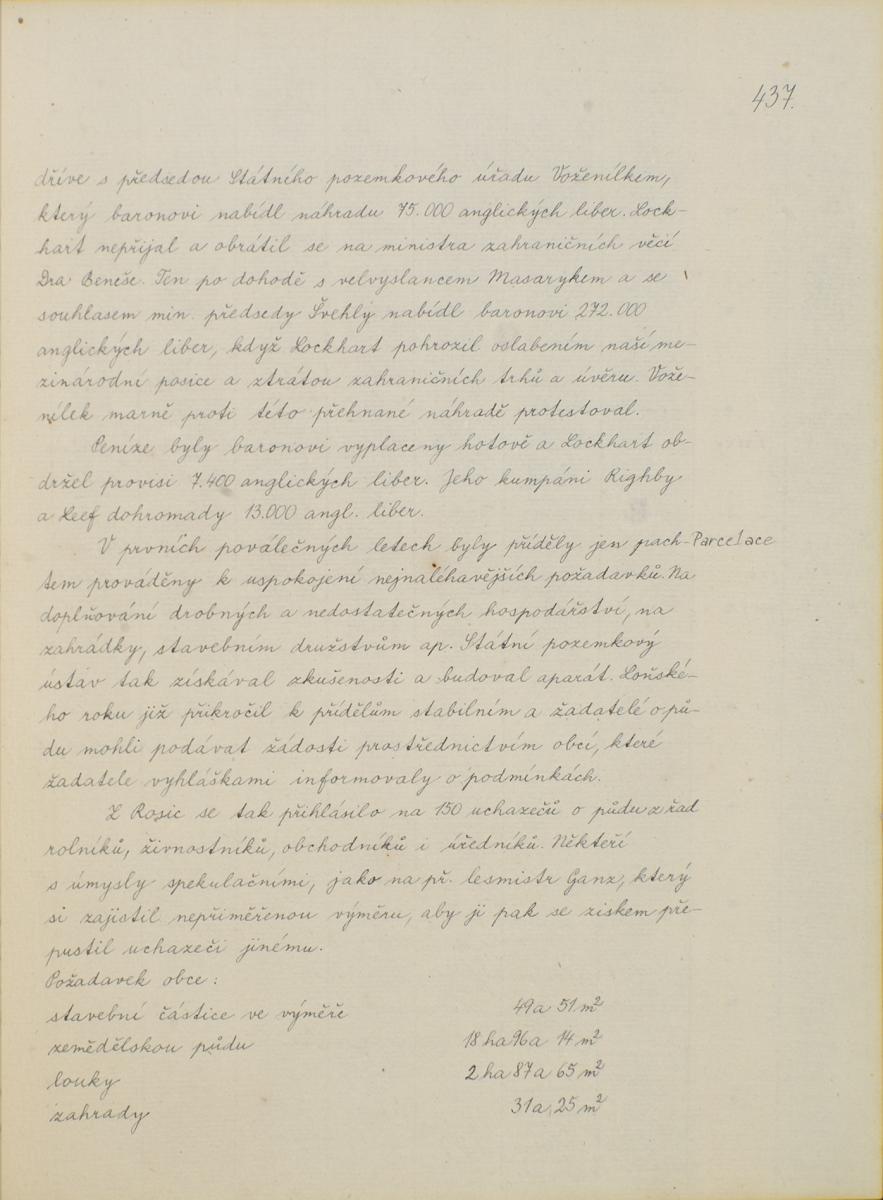 437.
dříve s předsedou Státního pozemkového úřadu Voženílkem,
který baronovi nabídl náhradu 75.000 anglických liber. Lock-
hart nepřijal a obrátil se na ministra zahraničních věcí
Dra Beneše. Ten po dohodě s velvyslancem Masarykem a se
souhlasem min. předsedy Švehly nabídl baronovi 272.000
anglických liber, když Lockhart pohrozil oslabením naší me-
zinárodní posice a ztrátou zahraničních trhů a úvěru. Vože-
nílek marně proti této přehnané náhradě protestoval.
Peníze byly baronovi vyplaceny hotově a Lockhart ob-
držel provisi 7.400 anglických liber. Jeho kumpáni Righby
a Leef dohromady 13.000 angl. liber.
V prvních poválečných letech byly příděly jen pach- Parcelace
tem prováděny k uspokojení nejnaléhavějších požadavků. Na
doplňování drobných a nedostatečných hospodářství, na
zahrádky, stavebním družstvům ap. Státní pozemkový
ústav tak získával zkušenosti a budoval aparát. Loňské-
ho roku již přikročil k přídělům stabilním a žadatelé o pů-
du mohli podávat žádosti prostřednictvím obcí, které
žadatele vyhláškami informovaly o podmínkách.
Z Rosic se tak přihlásilo na 150 uchazečů o půdu z řad
rolníků, živnostníků, obchodníků i úředníků. Někteří
s úmysly spekulačními, jako na př. lesmistr Ganz, který
si zajistil nepřiměřenou výměru, aby ji pak se ziskem pře-
pustil uchazeči jinému.
Požadavek obce:
stavební částice ve výměře 49a 51 m²
zemědělskou půdu 18 ha 96a 14 m²
louky 2 ha 87a 65 m²
zahrady 31a, 25 m²